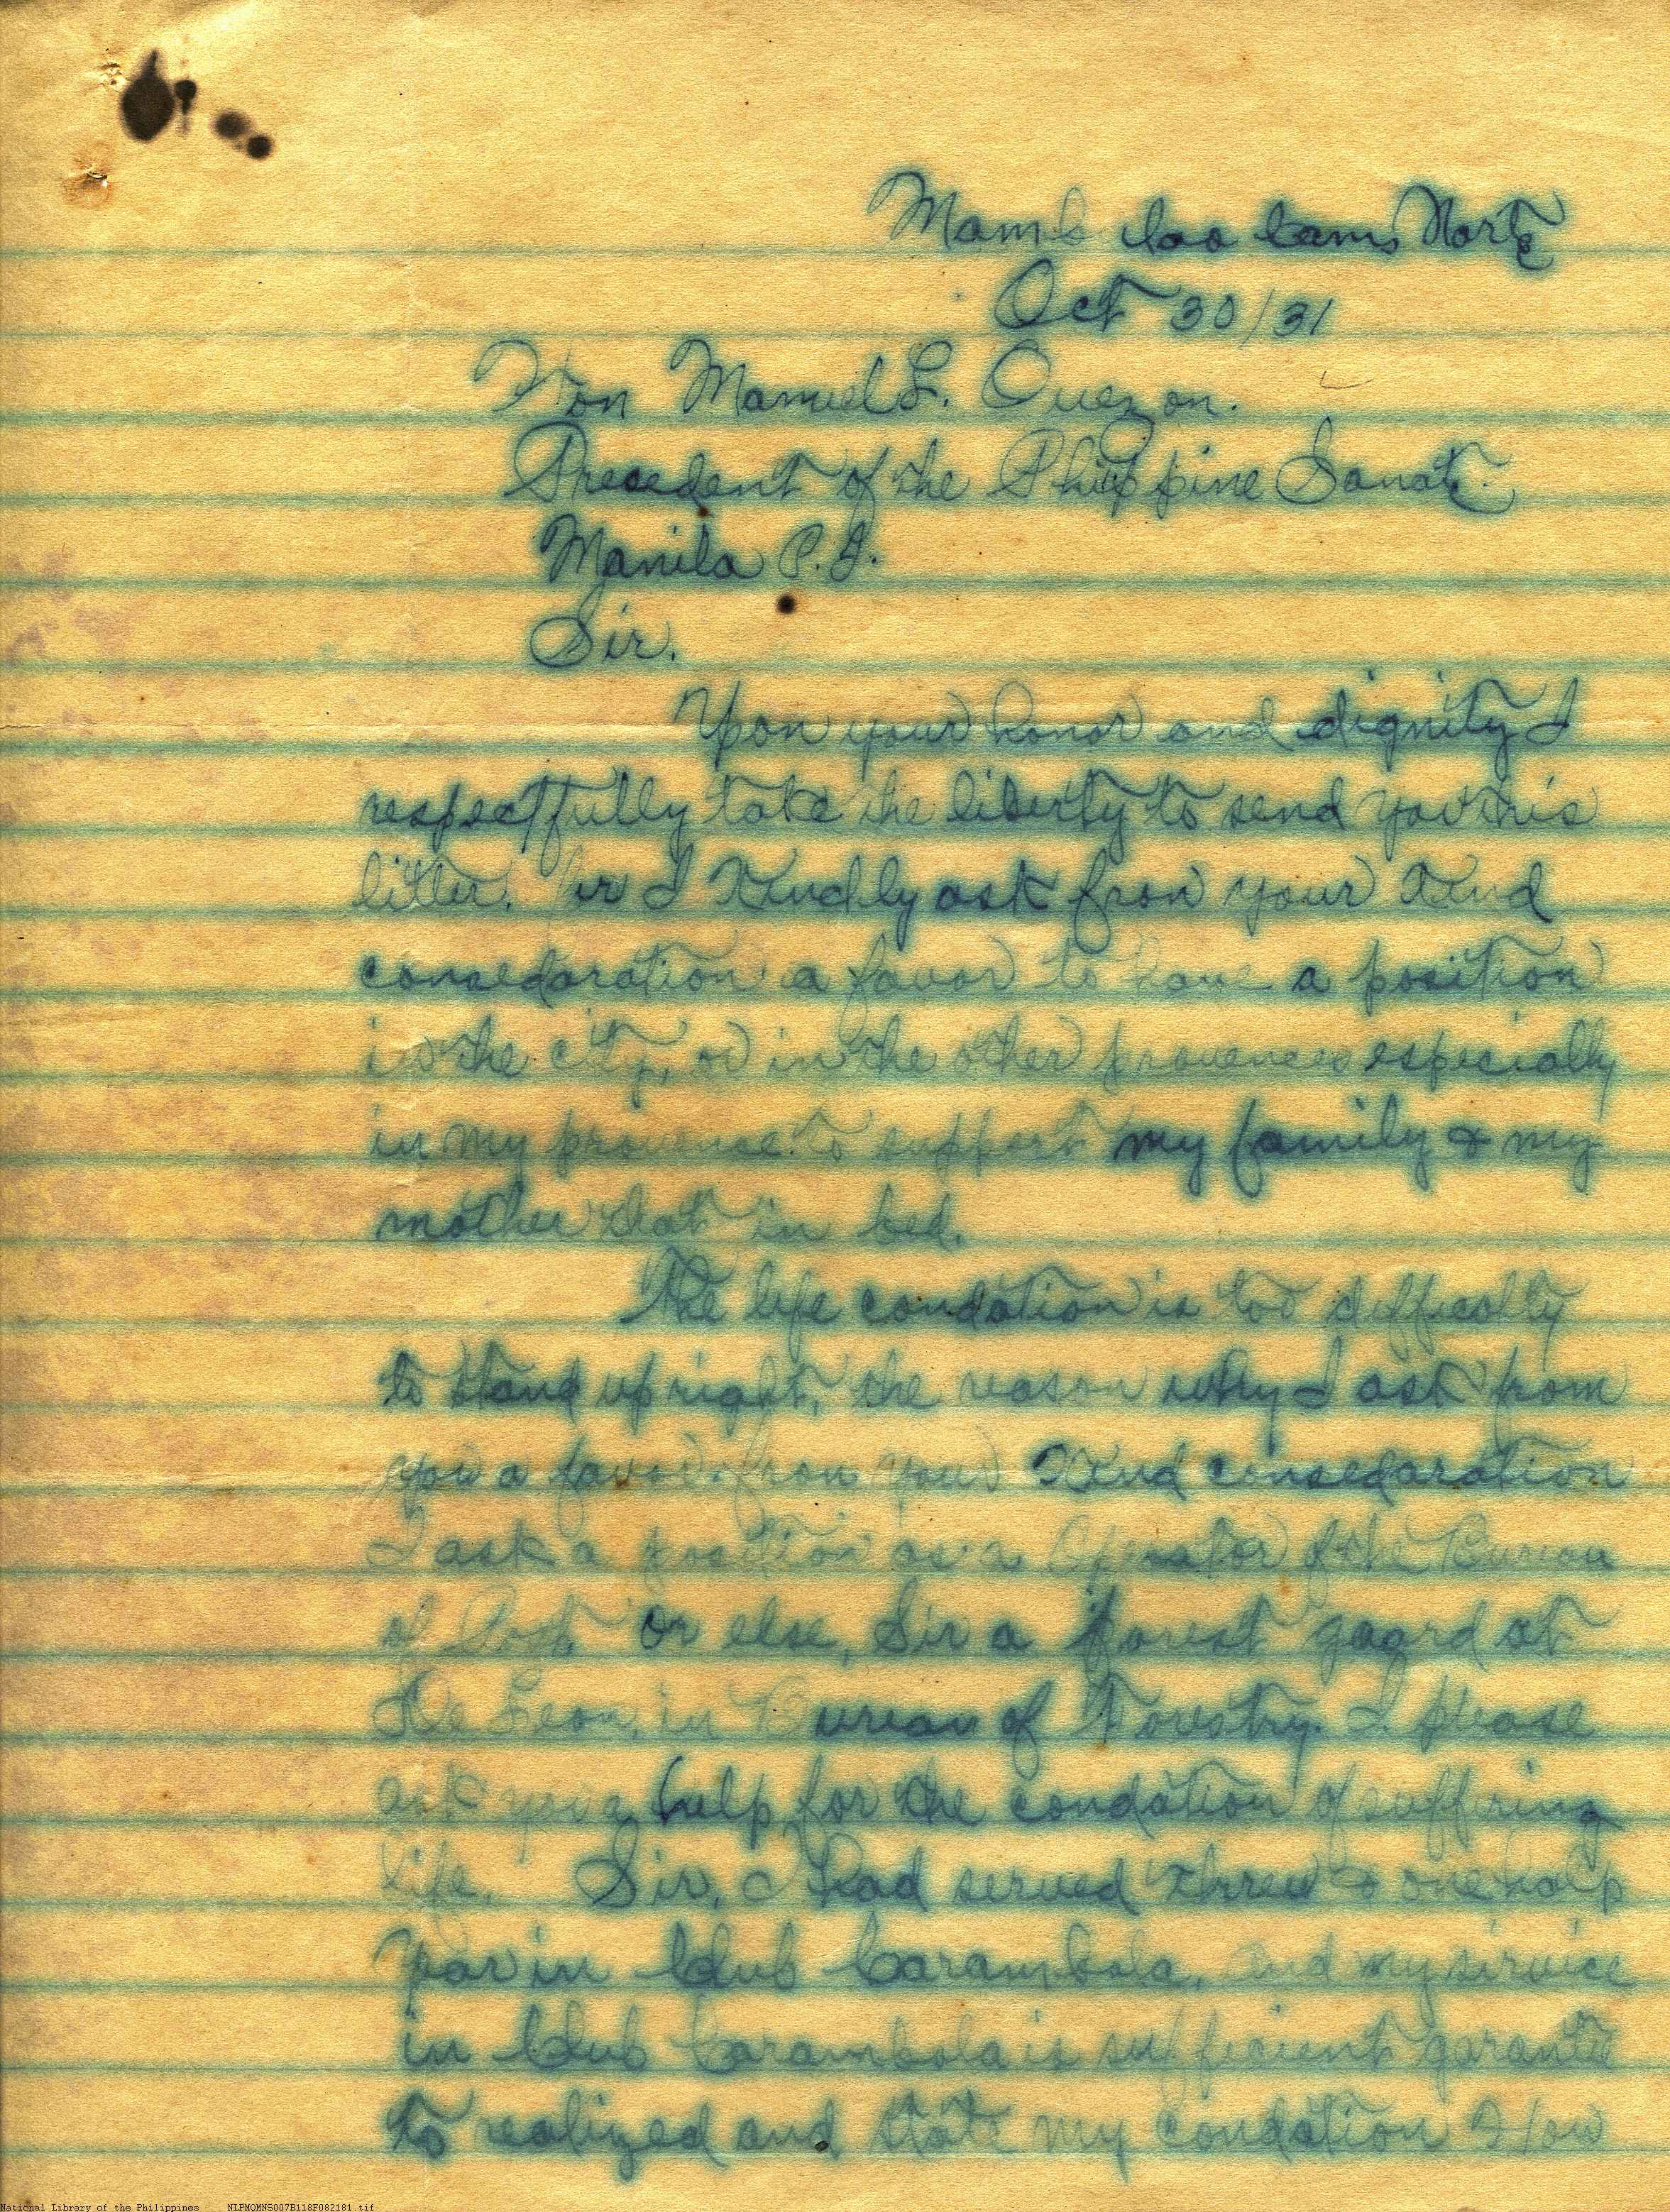 Mambulao Cams Norte
Oct 30/31
Hon Manuel L. Quezon.
Precedent of the Philippine Sanate.
Manila P.I.
Sir.
Upon your honor and dignity I
respectfully take the liberty to send you this
litter. Sir I kindly ask from your kind
consedaration a favor to have a position
in the city, or in the other provences especially
in my provence to support my family & my
mother that in bed.
The life condation is too difficolty
to stand up right, the reason why I ask from
you a favor from your kind consedaration
I ask a position as a Operator of the Bureau
of Post or else, Sir a forest gaard at
De Leon, in Bureau of Forestry. I please
ask you a help for the condation of suffiring
life. Sir, I had served three & one half
year in Club Carambola, and my sirvice
in Club Carambola is sufficient garantee
to realized and state my condation
National Library of the Philippines NLPMQMNS007B118F082181.tif